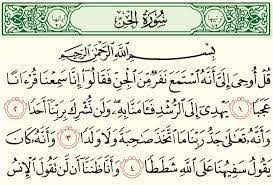 سُورَةُ الجِنّ
بِسْمِ ٱللَّهِ ٱلرَّحْمَٰنِ ٱلرَّحِيمِ
قُلْ أُوحِىَ إِلَىَّ أَنَّهُ ٱسْتَمَعَ نَفَرٌ مِّنَ ٱلْجِنِّ فَقَالُوٓا۟ إِنَّا سَمِعْنَا قُرْءَانًا
عَجَبًا ١ يَهْدِىٓ إِلَى ٱلرُّشْدِ فَـَٔامَنَّا بِهِۦ وَلَن نُّشْرِكَ بِرَبِّنَآ أَحَدًا ٢
وَأَنَّهُۥ تَعَٰلَىٰ جَدُّ رَبِّنَا مَا ٱتَّخَذَ صَٰحِبَةً وَلَا وَلَدًا ٣ وَأَنَّهُۥ كَانَ
يَقُولُ سَفِيهُنَا عَلَى ٱللَّهِ شَطَطًا ٤ وَأَنَّا ظَنَنَّآ أَن لَّن تَقُولَ ٱلْإِنسُ